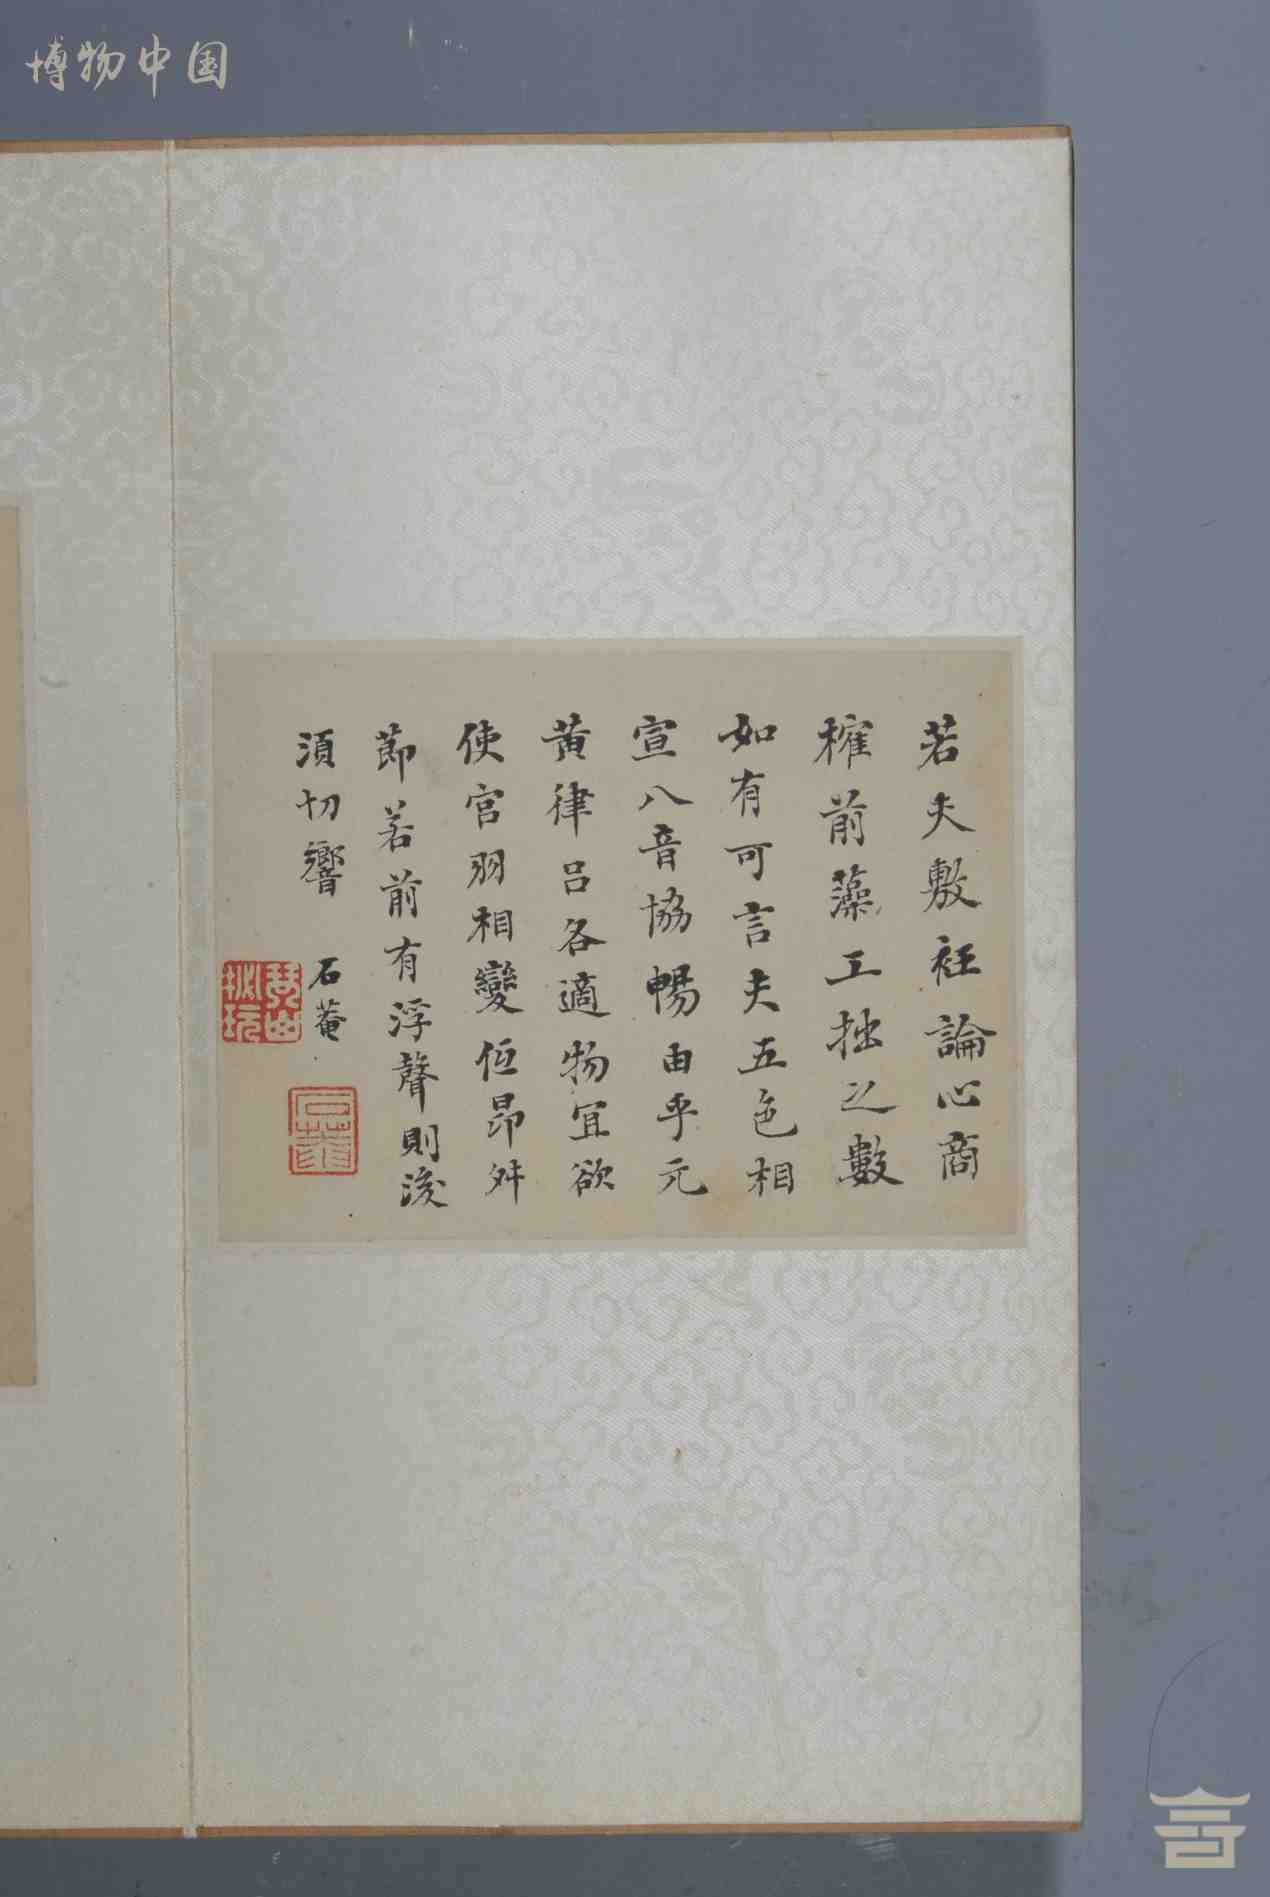 博物中国
若夫敷衽論心商
榷前藻工拙之數
如有可言夫五色相
宣八音協暢由乎元
黄律呂各適物宜欲
使宮羽相變低昂舛
節若前有浮聲則後
須切響
石菴
石菴